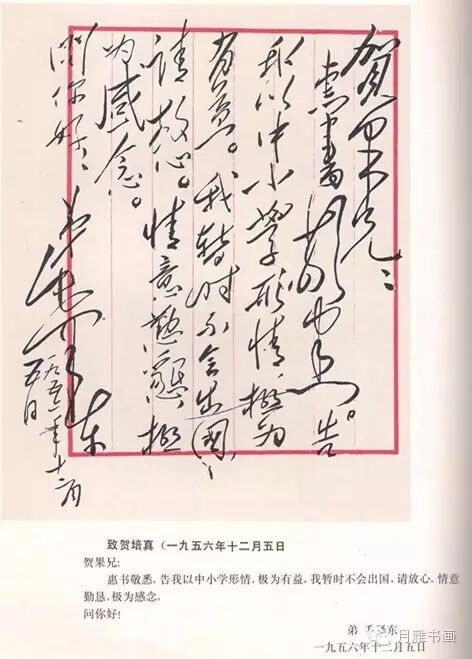 賀果兄：
惠書敬悉。告
我以中小學形情，極为
有益。我暂时不会出國，
请放心。情意懃懇，極
为感念。
问你好！
弟 毛泽东
一九五六年十二月
五日
致贺培真（一九五六年十二月五日
贺果兄：
惠书敬悉。告我以中小学形情，极为有益。我暂时不会出国，请放心。情意
勤恳，极为感念。
问你好！
弟 毛泽东
一九五六年十二月五日
月雅书画